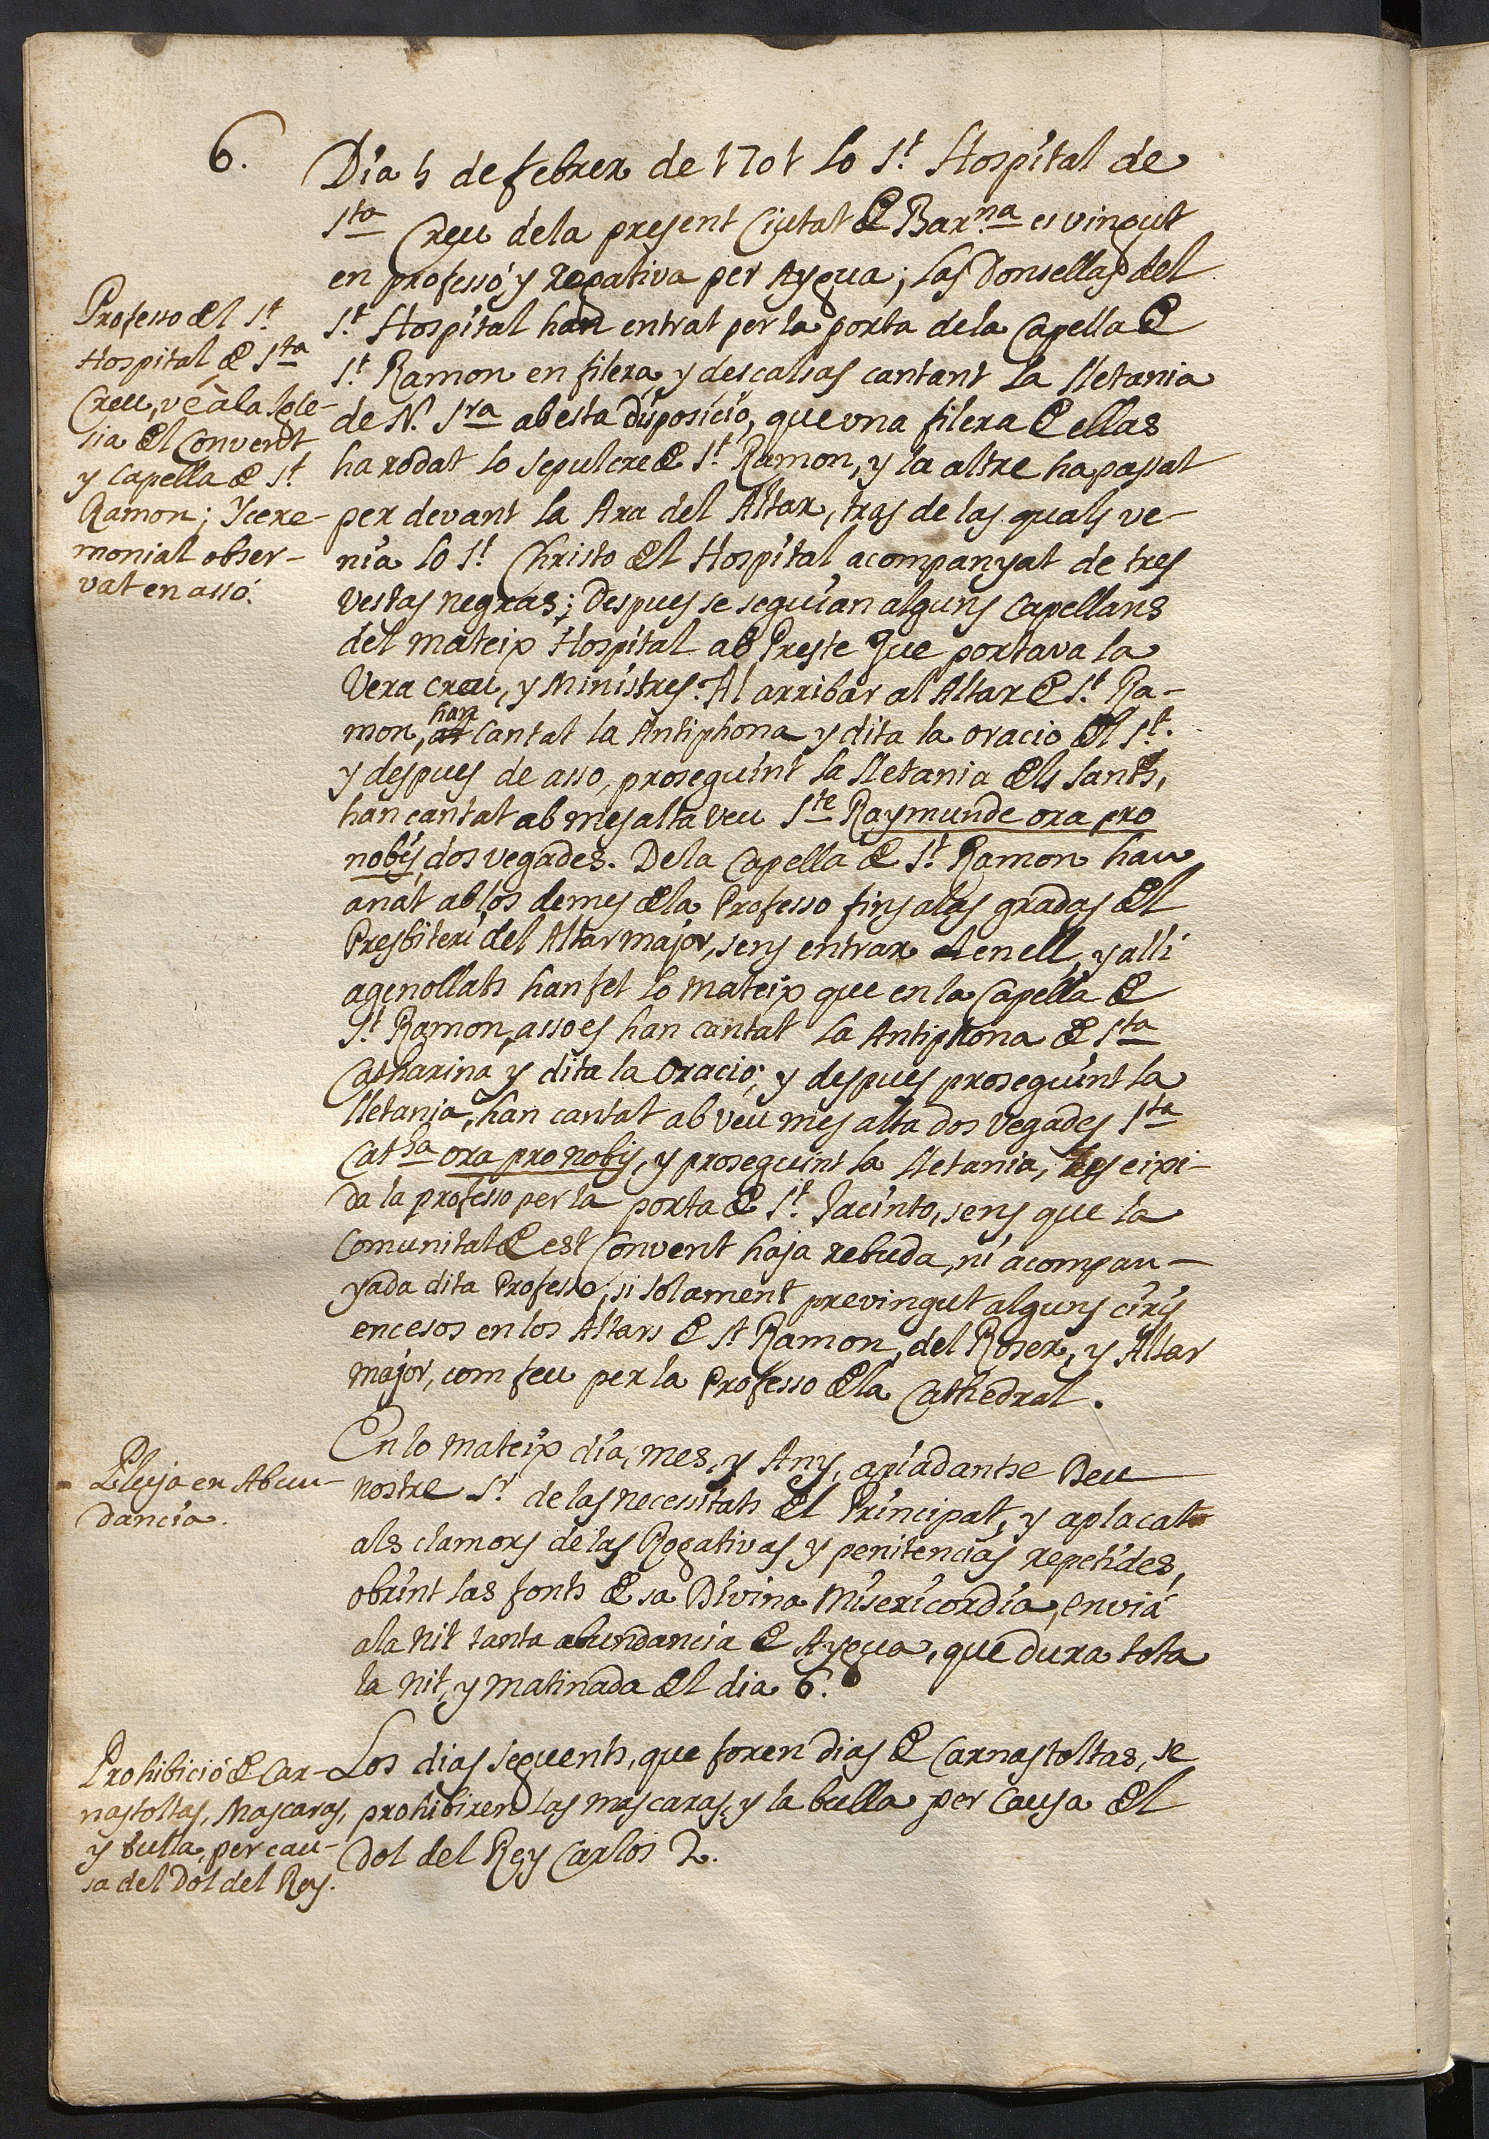 6.
Dia 5 de febrer de 1701 lo St. Hospital de
Sta Creu dela present Ciutat de Barna. es vingut
en professó y rogativa per Aygua; las Donsellas del
St. Hospital han entrat per la porta dela Capella de
St. Ramon en filera, y descalsas cantant la lletania
de N. Sra ab esta disposicio, que una filera de ellas
ha rodat lo sepulcre de St. Ramon, y la altre ha passat
per devant la Ara del Altar, tras de las quals ve-
nia lo St. Christo del Hospital acompanyat de tres
vestas negras; Despues se seguian alguns capellans
del mateix Hospital ab Preste que portava la
Vera creu, y Ministres. Al arribar al Altar de St. Ra-
mon, han cantat la Antiphona y dita la oracio del St.
y despues de asso, proseguint la lletania dels Sants,
han cantat ab mes alta veu Ste Raymunde ora pro
nobis, dos vegades. Dela Capella de St. Ramon han
anat ab los demes dela Professo fins a las gradas del
Presbiteri del Altar major, sens entrar en ell, y alli
agenollats han fet lo mateix que en la Capella de
St. Ramon, asso es han cantat la Antiphona de Sta
Catharina y dita la Oracio; y despues proseguint la
lletania, han cantat ab veu mes alta dos vegades Sta
Catha ora pro nobis, y proseguint la lletania, es eixi-
da la professo per la porta de St. Jacinto, sens que la
Comunitat de est Convent haja rebuda, ni acompan-
yada dita Professo, si solament previngut alguns ciris
encesos en los Altars de St Ramon, del Roser, y Altar
major, com feu per la Professo dela Cathedral.
Professo del St.
Hospital de Sta
Creu, vè à la Igle-
sia del Convent
y Capella de St.
Ramon; y cere-
monial obser-
vat en assó.
En lo mateix dia, mes, y Any, apiadantse Deu
nostre Sr. de las necessitats del Principat, y aplacat
als clamors de las Rogativas y penitencias repetides,
obrint las fonts de sa Divina Misericordia, enviá
a la nit tanta abundancia de Aygua, que dura tota
la nit, y matinada del dia 6.
Pluja en Abun-
dancia.
Los dias seguents, que foren dias de Carnastoltas, se
prohibiren las mascaras, y la bulla per causa del
Dol del Rey Carlos 2.
Prohibició de Car-
nastoltas, Mascaras,
y bulla, per cau-
sa del Dol del Rey.